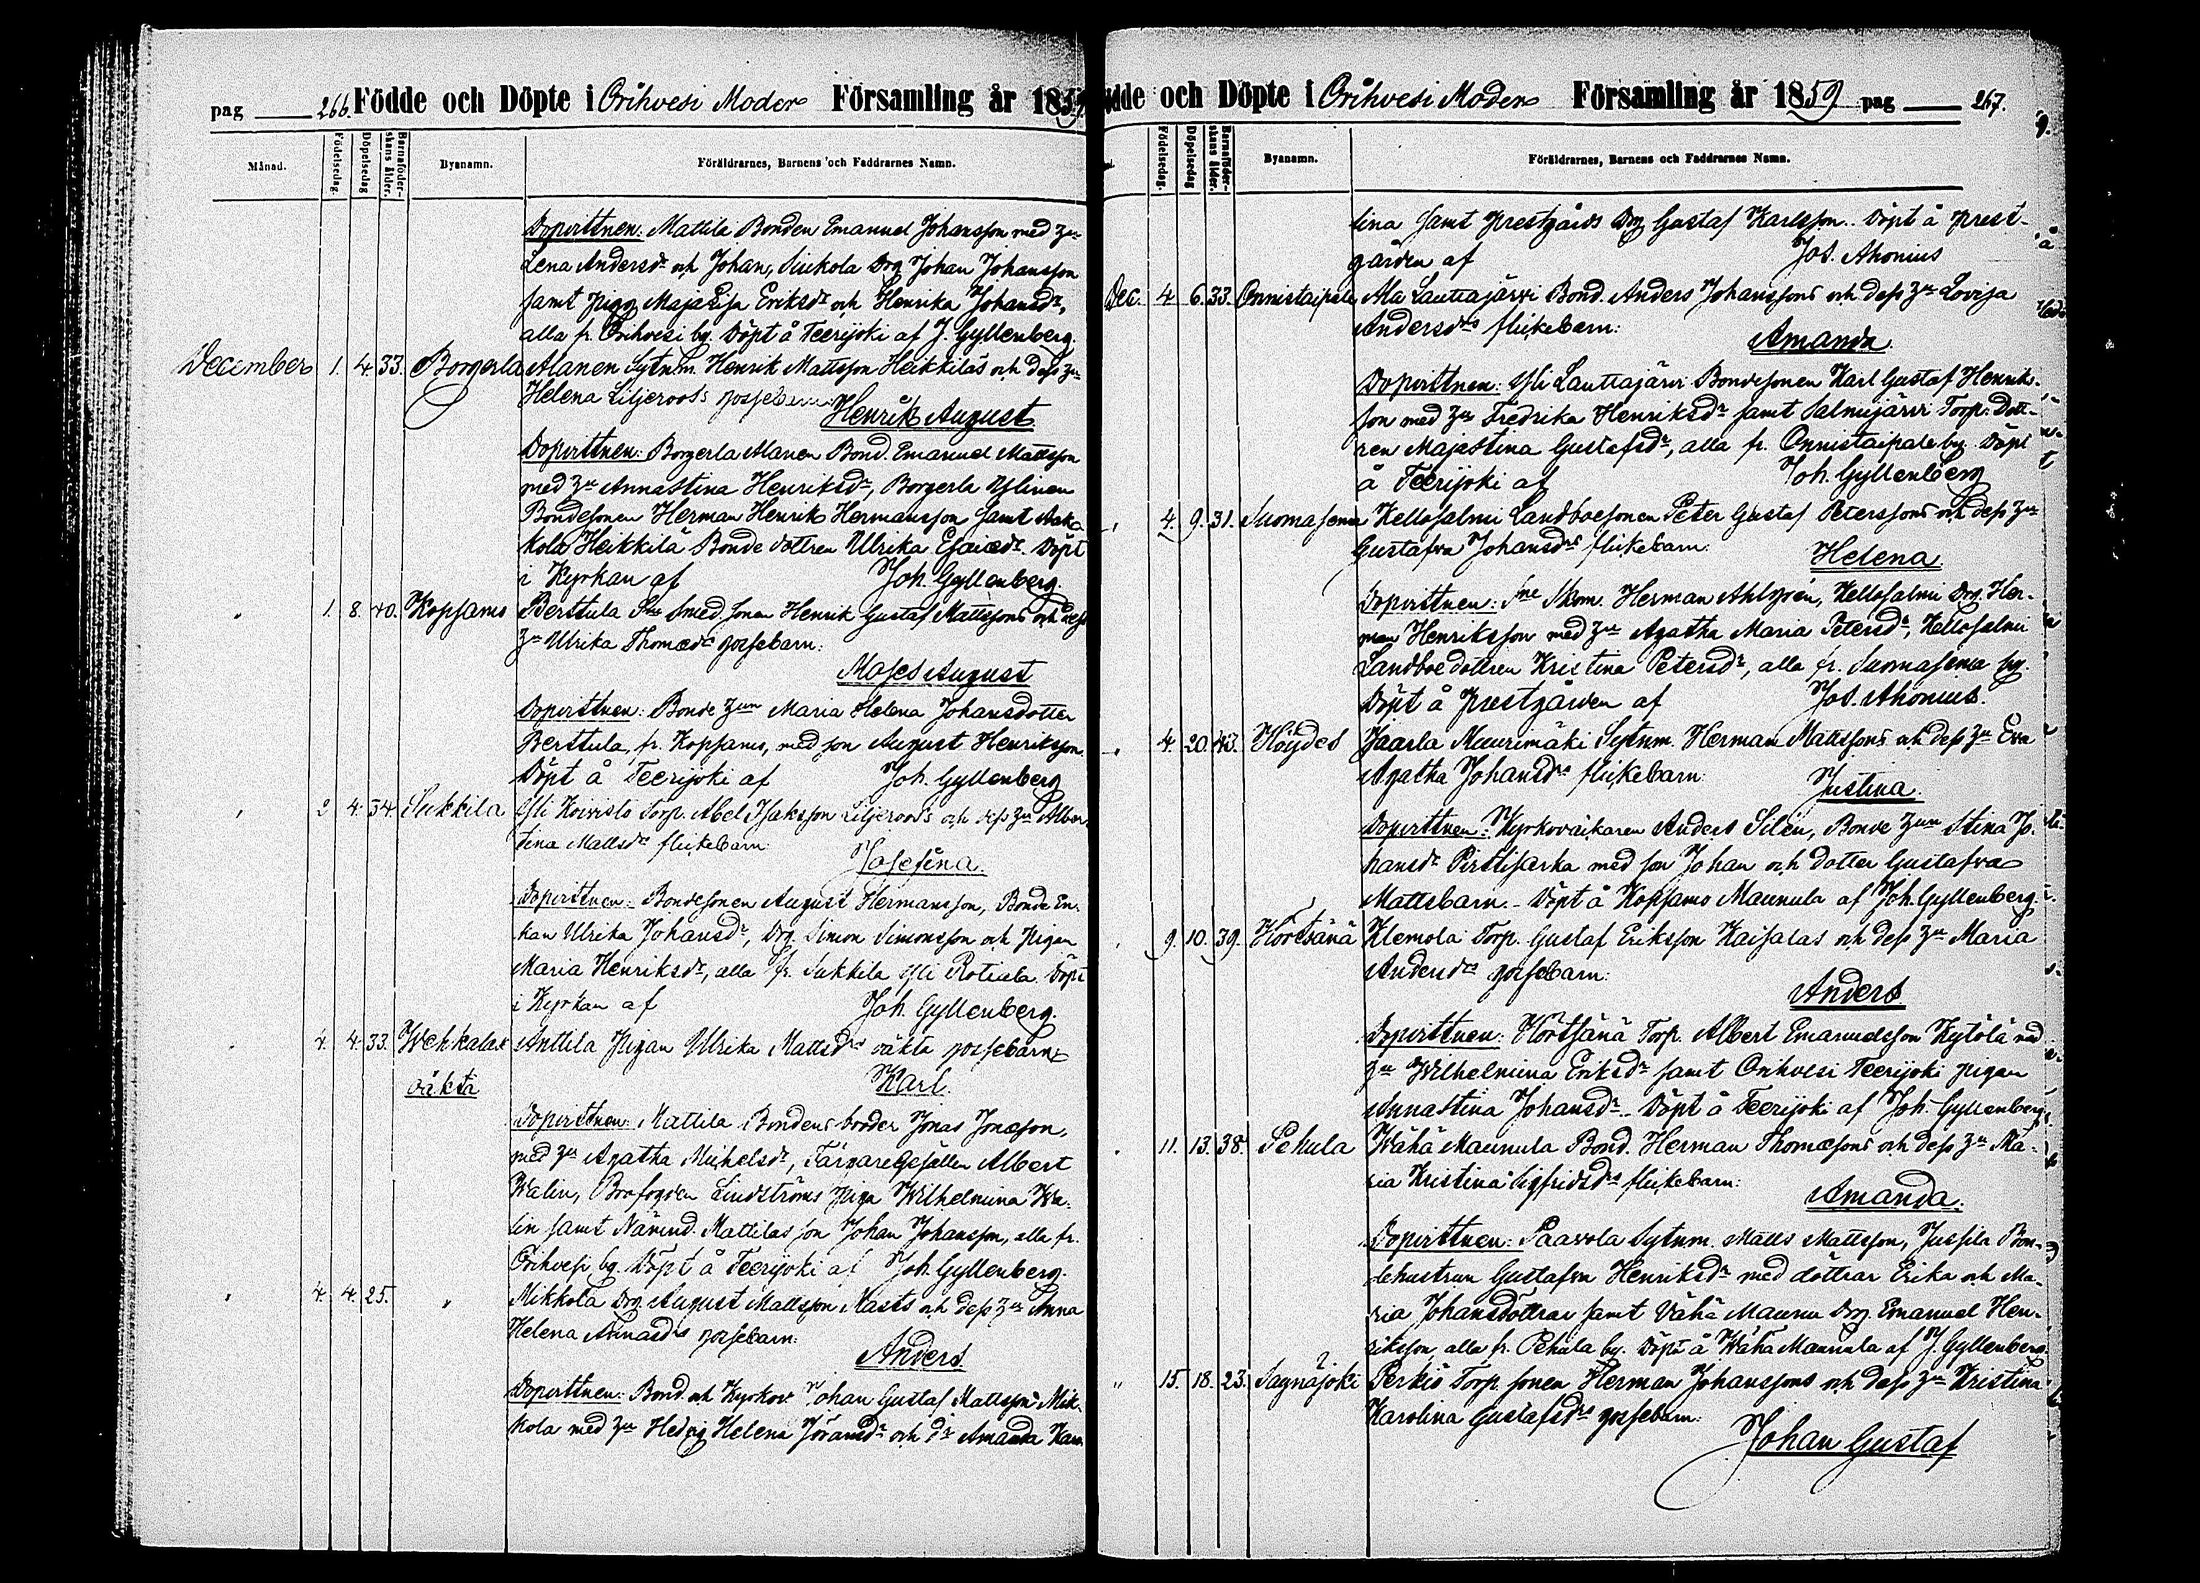 pag 266. Födde och Döpte i Orihvesi Moder Församling år 1859
Månad. Födelsedag. Döpelsedag Barnaföderskans ålder. Byanamn. Föräldrarnes, Barnens och Faddrarnes Namn.
Dopvittnen: Mattila Bonden Emanuel Johansson med hu
Lena Andersdr och Johan, Siukola Drg Johan Johansson
samt pigg Maja Lisa Eriksdr och Henrika Johansdr,
alla fr. Orihvesi by. Döpt å Teerijoki af J. Gyllenberg.
December 1. 4. 33. Borgerla Alanen Sytnm. Henrik Mattsson Heikkiläs och dess hu
Helena Liljeroos gossebarn:
Henrik August
Dopvittnen: Borgerla Alanen Bond. Emanuel Mattsson
med hu Annastina Henriksdr, Borgerla Ylinen
Bondesonen Herman Henrik Hermansson samt
kola Heikkilä Bonde dottren Ulrika Esaiædr. Döpt
i Kyrkan af Joh. Gyllenberg.
" 1. 8. 40. Kopsamo Berttula Smed sonen Henrik Gustaf Mattssons och dess
hu Ulrika Thomædrs gossebarn:
Moses August
Dopvittnen: Bonde hun Maria Helena Johansdotter
Berttula, fr. Kopsamo, med son August Henriksson.
Döpt å Teerijoki af Joh. Gyllenberg
" 2 4. 34. Sukkila Yli Koivisto Torp. Abel Isaksson Liljeroos och dess hu Alber
tina Mattsdrs flickebarn:
Josefina.
Dopvittnen: Bondesonen August Hermansson, Bonde En
kan Ulrika Johansdr, Drg. Simon Simonsson och pigan
Maria Henriksdr, alla fr. Sukkila Yli Rotiala. Döpt
i Kyrkan af Joh. Gyllenberg.
" 4. 4. 33. Wehkalax Anttila pigan Ulrika Mattsdrs oäkta gossebarn:
oäkta Karl.
Dopvittnen: Mattila Bondens broder Jonas Jonæson,
med hu Agatha Michelsdr, Färgare Gesällen Albert
Walin, Brofogden Lindströms piga Wilhelmina Wa-
lin samt Nämnd. Mattilas son Johan Johansson, alla fr.
Orihvesi by. Döpt å Teerijoki af Joh. Gyllenberg.
" 4. 4. 25. " Mikkola Drg. August Mattsson Nasts och dess hu Anna
Helena gossebarn:
Anders
Dopvittnen: Bond. och Kyrkov. Johan Gustaf Mattsson Mik-
kola med hu Hedvig Helena Jöransdr och dr Amanda Karo
Födde och Döpte i Orihvesi Moder Församling år 1859 pag 267.
Födelsedag. Döpelsedag Barnaföderskans ålder. Byanamn. Föräldrarnes, Barnens och Faddrarnes Namn.
lina samt prestgårds Drg Gustaf Karlsson. Döpt å prest-
gården af Jos. Ahonius
Dec. 4. 6. 33. Onnistaipale Ala Lauttajärvi Bond. Anders Johanssons och dess hu Lovisa
Andersdrs flickebarn:
Amanda.
Dopvittnen: Yli Lauttajärvi Bondesonen Karl Gustaf Henriks-
son med hu Fredrika Henriksdr samt Salmijärvi Torp. Dott-
ren Majastina Gustafsdr, alla fr. Onnistaipale by. Döpt
å Teerijoki af Joh. Gyllenberg
" 4. 9. 31. Suomasema Kellosalmi Landboesonen Peter Gustaf Peterssons och dess hu
Gustafva Johansdrs flickebarn:
Helena
Dopvittnen: Herman Ahlgrén, Kellosalmi Drg. Her-
man Henriksson med hu Agatha Maria Petersdr, Kellosalmi
Landboe dottren Kristina Petersdr, alla fr. Suomasema by.
Döpt å prestgården af Jos. Ahonius.
" 4. 20. 43. Höydes Jaarla Maurimäki Sytnm. Herman Mattssons och dess hu Eva
Agatha Johansdrs flickebarn:
Justina.
Dopvittnen: Kyrkoväkaren Anders Silén, Bonde hun Stina Jo-
hansdr Pirttisarka med son Johan och dotter Gustafva
Mattsbarn. Döpt å Kopsamo Maunula af Joh. Gyllenberg.
" 9. 10. 39. Hörtsänä Klemola Torp. Gustaf Eriksson Kaisalas och dess hu Maria
Andersdrs gossebarn:
Anders
Dopvittnen: Hörtsänä Torp. Albert Emanuelsson Kytölä med
hu Wilhelmina Eriksdr samt Orihvesi Teerijoki pigan
Annastina Johansdr. Döpt å Teerijoki af Joh. Gyllenberg
" 11. 13. 38. Pehula Wähä Maunula Bond. Herman Thomæsons och dess hu Ma-
ria Kristina Sigfridsdrs flickebarn:
Amanda.
Dopvittnen: Paavola Sytnm. Matts Mattsson, Jussila Bon-
dehustrun Gustafva Henriksdr med döttrar Erika och Ma-
ria Johansdöttrar samt Vähä Maunu Drg. Emanuel Hen-
riksson, alla fr. Pehula by. Döpt å Wähä Maunula af J. Gyllenberg
" 15. 18. 23. Sagnäjoki Perkiö Torp. sonen Herman Johanssons och dess hu Kristina
Karolina Gustafsdrs gossebarn:
Johan Gustaf